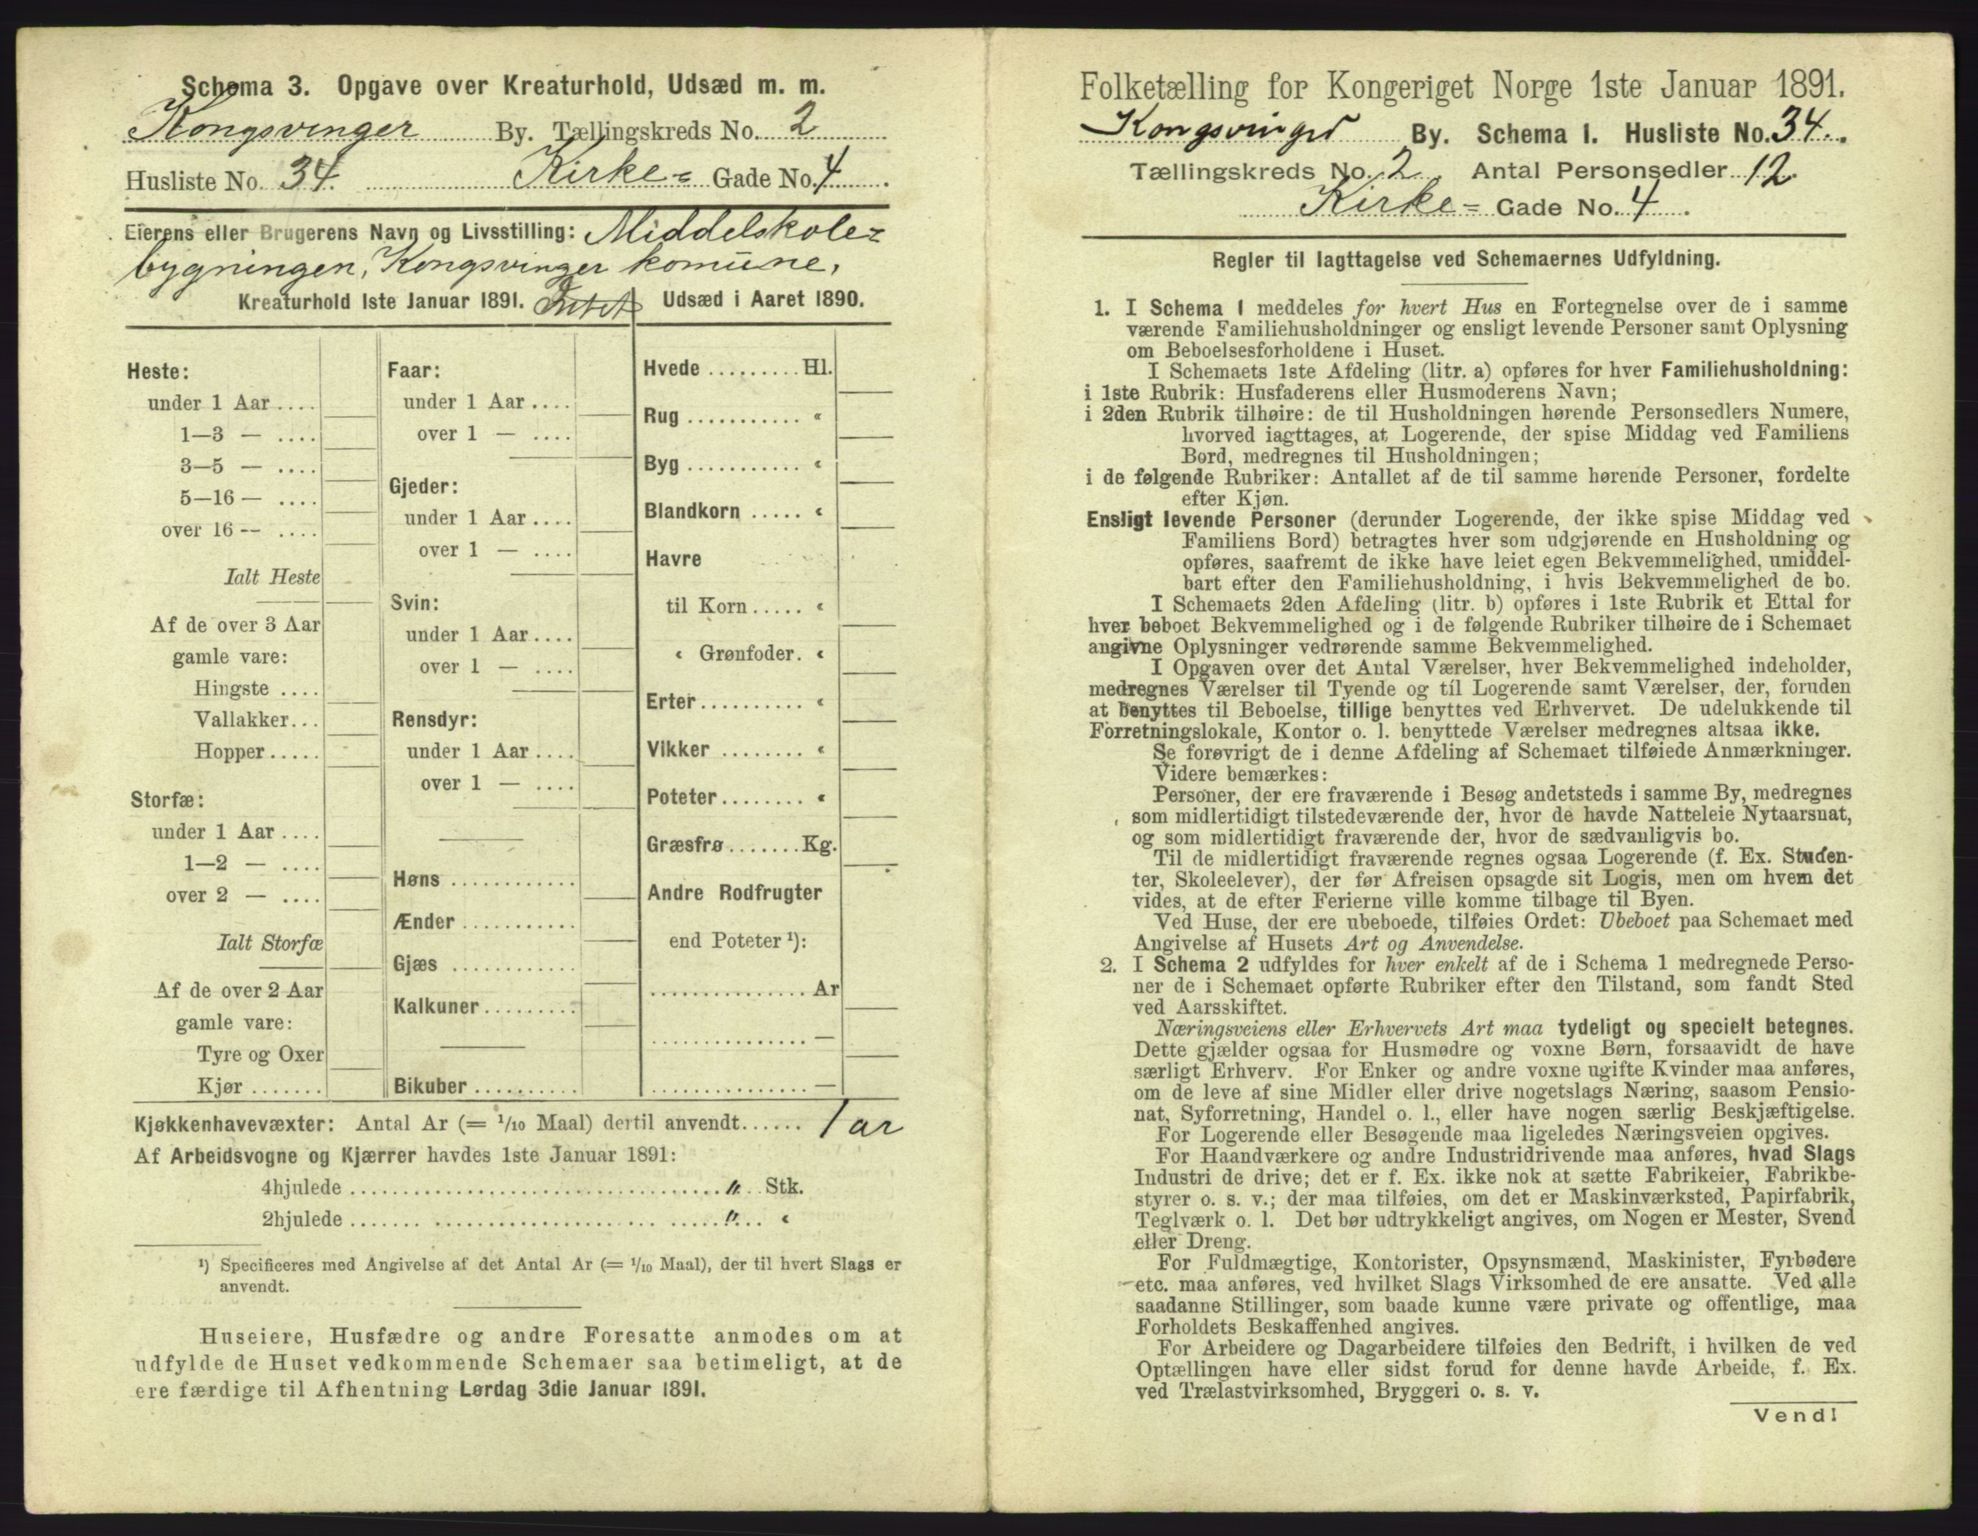 Schema 3. Opgave over Kreaturhold, Udsæd m. m.
Kongsvinger By. Tællingskreds No. 2
Husliste No. 34. Kirke= Gade No. 4.
Eierens eller Brugerens Navn og Livsstilling: Middelskole=
bygningen, Kongsvinger komune,
Kreaturhold 1ste Januar 1891. Intet Udsæd i Aaret 1890.
Heste:
under 1 Aar....
1—3 — ....
3—5 — ....
5—16 — ....
over 16 — ....
Ialt Heste
Af de over 3 Aar
gamle vare:
Hingste ....
Vallakker...
Hopper.....
Storfæ:
under 1 Aar....
1—2 — ....
over 2 — ....
Ialt Storfæ
Af de over 2 Aar
gamle vare:
Tyre og Oxer
Kjør.......
Faar:
under 1 Aar....
over 1 — ....
Gjeder:
under 1 Aar....
over 1 — ....
Svin:
under 1 Aar....
over 1 — ....
Rensdyr:
under 1 Aar....
over 1 — ....
Høns...........
Ænder..........
Gjæs...........
Kalkuner........
Bikuber.........
Hvede.........Hl.
Rug........... «
Byg........... «
Blandkorn ..... «
Havre
til Korn..... «
« Grønfoder. «
Erter.......... «
Vikker......... «
Poteter........ «
Græsfrø.......Kg.
Andre Rodfrugter
end Poteter ¹):
...............Ar
...............—
...............—
Kjøkkenhavevæxter: Antal Ar (= 1/10 Maal) dertil anvendt...... 1 ar
Af Arbeidsvogne og Kjærrer havdes 1ste Januar 1891:
4hjulede .......................................... " Stk.
2hjulede .......................................... " «
¹) Specificeres med Angivelse af det Antal Ar (= 1/10 Maal), der til hvert Slags er
anvendt.
Huseiere, Husfædre og andre Foresatte anmodes om at
udfylde de Huset vedkommende Schemaer saa betimeligt, at de
ere færdige til Afhentning Lørdag 3die Januar 1891.
Folketælling for Kongeriget Norge 1ste Januar 1891.
Kongsvinger By. Schema 1. Husliste No. 34.
Tællingskreds No. 2. Antal Personsedler 12.
Kirke= Gade No. 4.
Regler til Iagttagelse ved Schemaernes Udfyldning.
1. I Schema 1 meddeles for hvert Hus en Fortegnelse over de i samme
værende Familiehusholdninger og ensligt levende Personer samt Oplysning
om Beboelsesforholdene i Huset.
I Schemaets 1ste Afdeling (litr. a) opføres for hver Familiehusholdning:
i 1ste Rubrik: Husfaderens eller Husmoderens Navn;
i 2den Rubrik tilhøire: de til Husholdningen hørende Personsedlers Numere,
hvorved iagttages, at Logerende, der spise Middag ved Familiens
Bord, medregnes til Husholdningen;
i de følgende Rubriker: Antallet af de til samme hørende Personer, fordelte
efter Kjøn.
Ensligt levende Personer (derunder Logerende, der ikke spise Middag ved
Familiens Bord) betragtes hver som udgjørende en Husholdning og
opføres, saafremt de ikke have leiet egen Bekvemmelighed, umiddel-
bart efter den Familiehusholdning, i hvis Bekvemmelighed de bo.
I Schemaets 2den Afdeling (litr. b) opføres i 1ste Rubrik et Ettal for
hver beboet Bekvemmelighed og i de følgende Rubriker tilhøire de i Schemaet
angivne Oplysninger vedrørende samme Bekvemmelighed.
I Opgaven over det Antal Værelser, hver Bekvemmelighed indeholder,
medregnes Værelser til Tyende og til Logerende samt Værelser, der, foruden
at benyttes til Beboelse, tillige benyttes ved Erhvervet. De udelukkende til
Forretningslokale, Kontor o. l. benyttede Værelser medregnes altsaa ikke.
Se forøvrigt de i denne Afdeling af Schemaet tilføiede Anmærkninger.
Videre bemærkes:
Personer, der ere fraværende i Besøg andetsteds i samme By, medregnes
som midlertidigt tilstedeværende der, hvor de havde Natteleie Nytaarsnat,
og som midlertidigt fraværende der, hvor de sædvanligvis bo.
Til de midlertidigt fraværende regnes ogsaa Logerende (f. Ex. Studen-
ter, Skoleelever), der før Afreisen opsagde sit Logis, men om hvem det
vides, at de efter Ferierne ville komme tilbage til Byen.
Ved Huse, der ere ubeboede, tilføies Ordet: Ubeboet paa Schemaet med
Angivelse af Husets Art og Anvendelse.
2. I Schema 2 udfyldes for hver enkelt af de i Schema 1 medregnede Perso-
ner de i Schemaet opførte Rubriker efter den Tilstand, som fandt Sted
ved Aarsskiftet.
Næringsveiens eller Erhvervets Art maa tydeligt og specielt betegnes.
Dette gjælder ogsaa for Husmødre og voxne Børn, forsaavidt de have
særligt Erhverv. For Enker og andre voxne ugifte Kvinder maa anføres,
om de leve af sine Midler eller drive nogetslags Næring, saasom Pensio-
nat, Syforretning, Handel o. l., eller have nogen særlig Beskjæftigelse.
For Logerende eller Besøgende maa ligeledes Næringsveien opgives.
For Haandværkere og andre Industridrivende maa anføres, hvad Slags
Industri de drive; det er f. Ex. ikke nok at sætte Fabrikeier, Fabrikbe-
styrer o. s. v.; der maa tilføies, om det er Maskinværksted, Papirfabrik,
Teglværk o. l. Det bør udtrykkeligt angives, om Nogen er Mester, Svend
eller Dreng.
For Fuldmægtige, Kontorister, Opsynsmænd, Maskinister, Fyrbødere
etc. maa anføres, ved hvilket Slags Virksomhed de ere ansatte. Ved alle
saadanne Stillinger, som baade kunne være private og offentlige, maa
Forholdets Beskaffenhed angives.
For Arbeidere og Dagarbeidere tilføies den Bedrift, i hvilken de ved
Optællingen have eller sidst forud for denne havde Arbeide, f. Ex.
ved Trælastvirksomhed, Bryggeri o. s. v.
Vend!